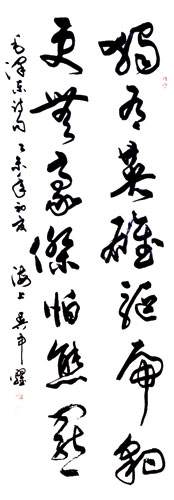 獨有英雄驅虎豹
更無豪傑怕熊羆
毛澤東詩句 乙未年初夏 海上吳申耀